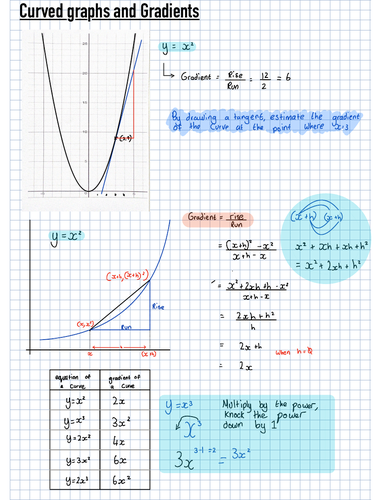 Curved graphs and Gradients
y = x²
Gradient = Rise/Run = 12/2 = 6
By drawing a tangent, estimate the gradient
of the curve at the point where x=3
(3,9)
y = x²
(x+h, (x+h)²)
(x, x²)
Rise
Run
x
(x+h)
Gradient = rise/run
= (x+h)² - x² / x+h - x
= x² + 2xh + h² - x² / x+h - x
= 2xh + h² / h
= 2x + h
when h=0
= 2x
(x+h) (x+h)
x² + xh + xh + h²
= x² + 2xh + h²
equation of a curve | gradient of a curve
y = x² | 2x
y = x³ | 3x²
y = 2x² | 4x
y = 3x² | 6x
y = 2x³ | 6x²
y = x³
Multiply by the power,
knock the power
down by 1
x³
3x³⁻¹⁼² = 3x²